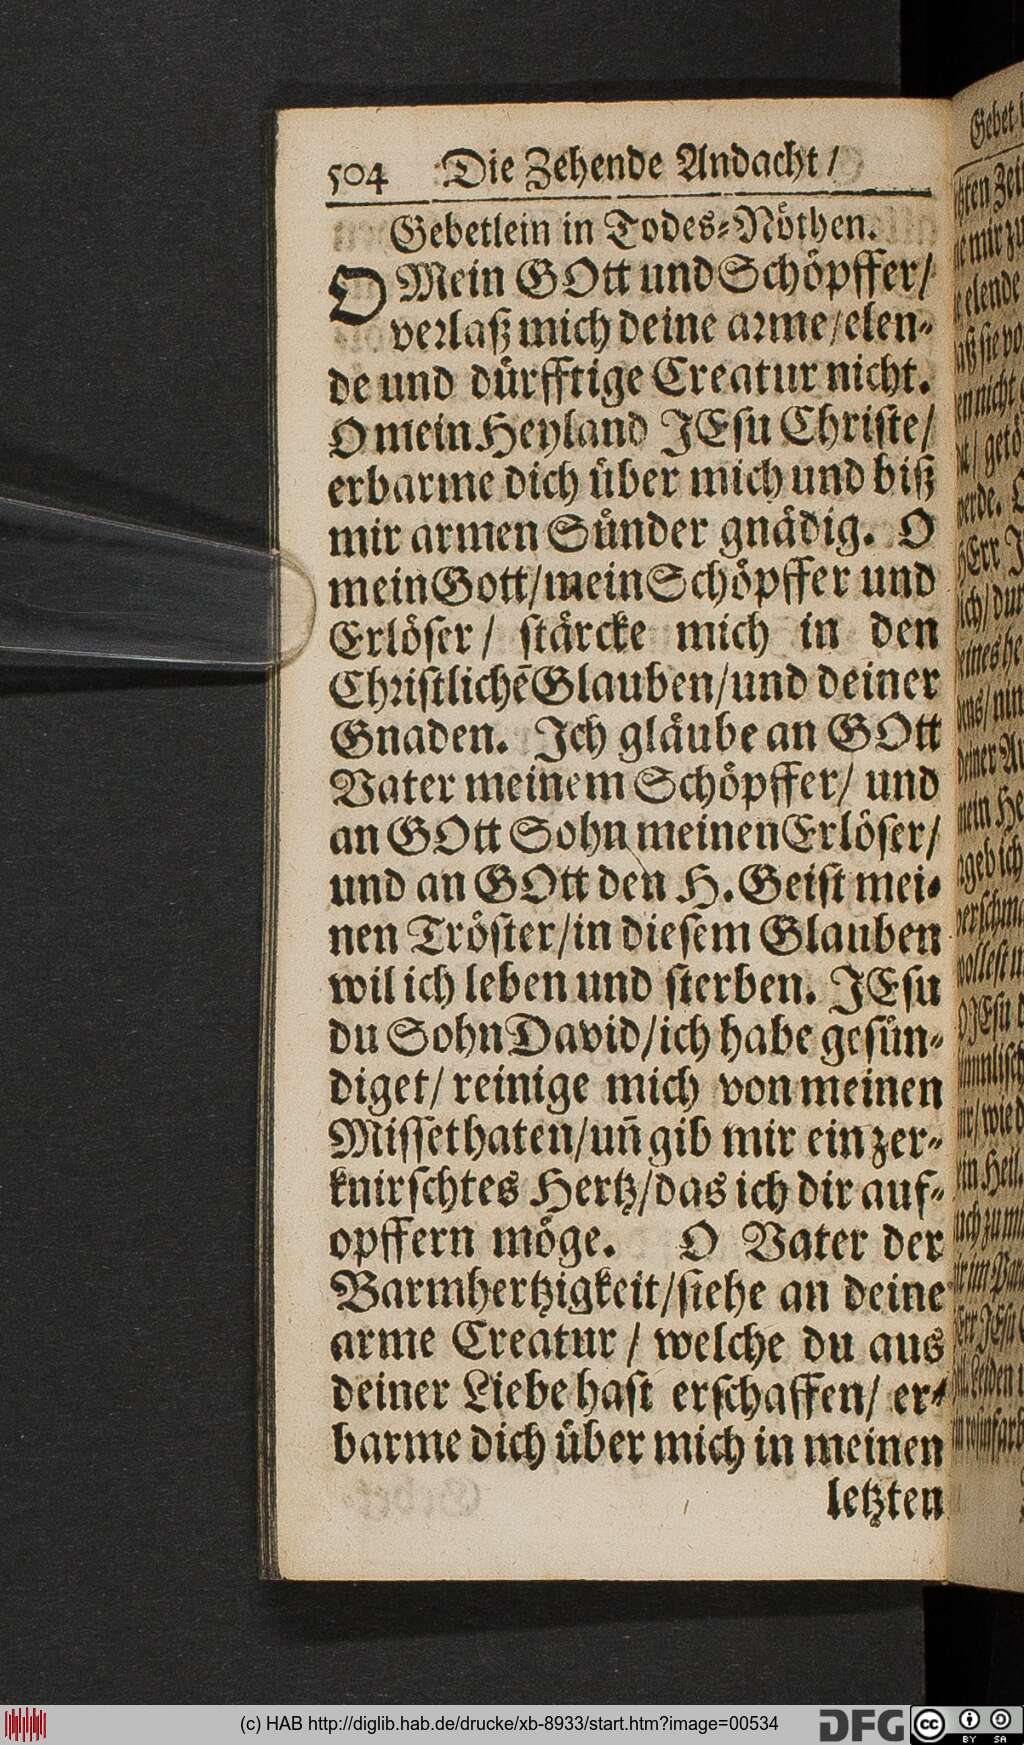 504 Die Zehende Andacht /
Gebetlein in Todes-Nöthen.
O Mein GOtt und Schöpffer /
verlaß mich deine arme / elen-
de und dürfftige Creatur nicht.
O mein Heyland JEsu Christe /
erbarme dich über mich und biß
mir armen Sünder gnädig. O
mein Gott / mein Schöpffer und
Erlöser / stärcke mich in den
Christlichẽ Glauben / und deiner
Gnaden. Ich gläube an GOtt
Vater meinem Schöpffer / und
an GOtt Sohn meinen Erlöser /
und an GOtt den H. Geist mei-
nen Tröster / in diesem Glauben
wil ich leben und sterben. JEsu
du Sohn David / ich habe gesün-
diget / reinige mich von meinen
Missethaten / uñ gib mir ein zer-
knirschtes Hertz / das ich dir auf-
opffern möge. O Vater der
Barmhertzigkeit / siehe an deine
arme Creatur / welche du aus
deiner Liebe hast erschaffen / er-
barme dich über mich in meinen
letzten
(c) HAB http://diglib.hab.de/drucke/xb-8933/start.htm?image=00534
DFG
cc
BY SA